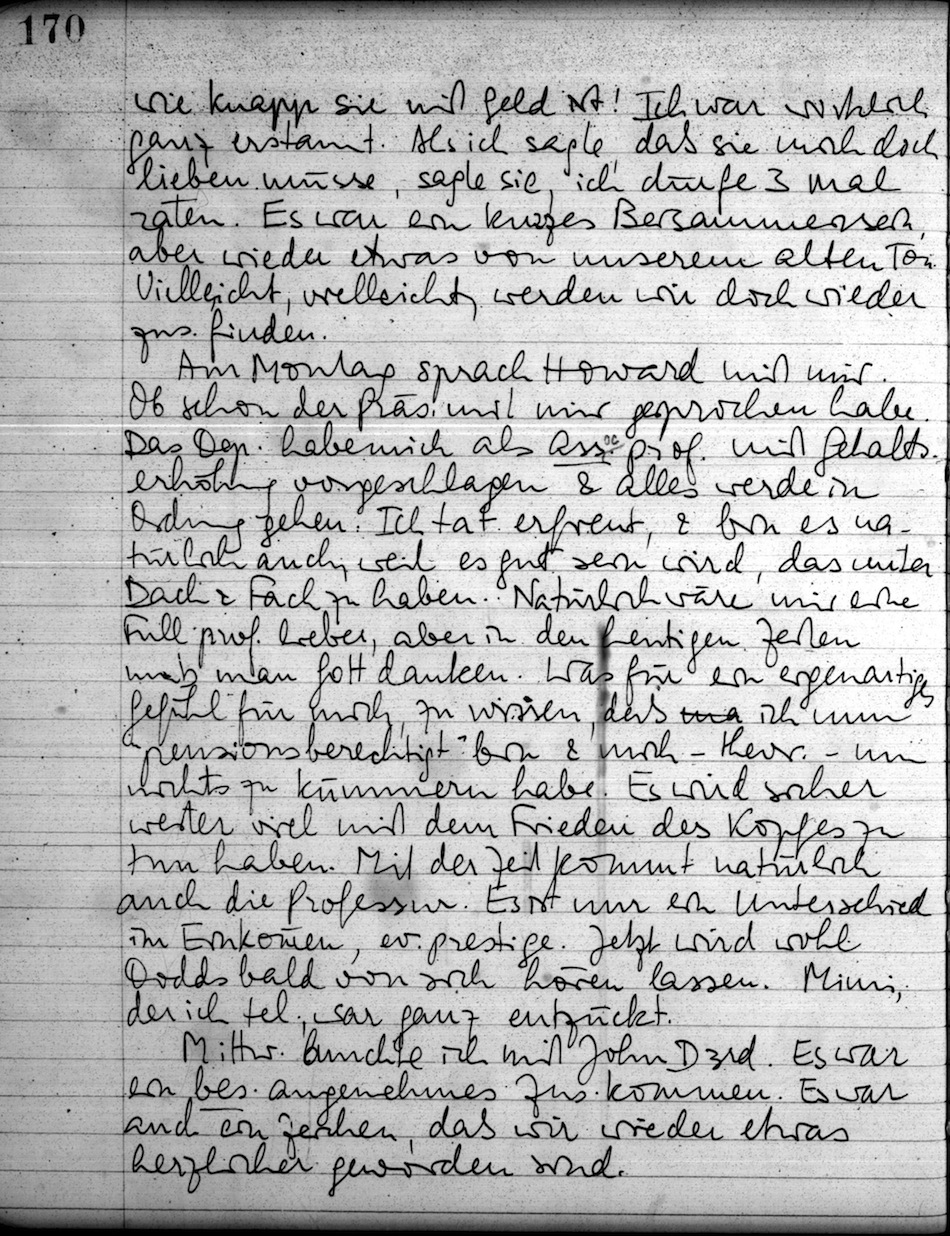 170
wie knapp sie mit Geld ist! Ich war wirklich
ganz erstaunt. Als ich sagte, daß sie mich doch
lieben müsse, sagte sie, ich dürfe 3 mal
raten. Es war ein kurzes Beisammensein,
aber wieder etwas von unserem alten Ton.
Vielleicht, vielleicht, werden wir doch wieder
zus. finden.
Am Montag sprach Howard mit mir.
Ob schon der Präs. mit mir gesprochen habe.
Das Dep. habe mich als Assoc. prof. mit Gehalts-
erhöhung vorgeschlagen & alles werde in
Ordnung gehen. Ich tat erfreut, & bin es na-
türlich auch, weil es gut sein wird, das unter
Dach & Fach zu haben. Natürlich wäre mir eine
Full prof. lieber, aber in den heutigen Zeiten
muß man Gott danken. Was für ein eigenartiges
Gefühl für mich, zu wissen, daß ich nun
"pensionsberechtigt" bin & mich - theor. - um
nichts zu kümmern habe. Es wird sicher
weiter viel mit dem Frieden des Kopfes zu
tun haben. Mit der Zeit kommt natürlich
auch die Professur. Es ist nur ein Unterschied
im Einkom̄en, ev. prestige. Jetzt wird wohl
Dodds bald von sich hören lassen. Mimi,
der ich tel., war ganz entzückt.
Mittw. lunchte ich mit John D3rd. Es war
ein bes. angenehmes Zus.kommen. Es war
auch ein Zeichen, daß wir wieder etwas
herzlicher geworden sind.